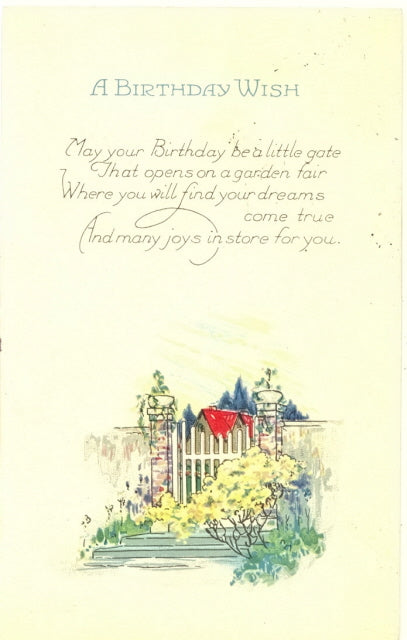 A Birthday Wish
May your Birthday be a little gate
That opens on a garden fair
Where you will find your dreams
come true
And many joys in store for you.